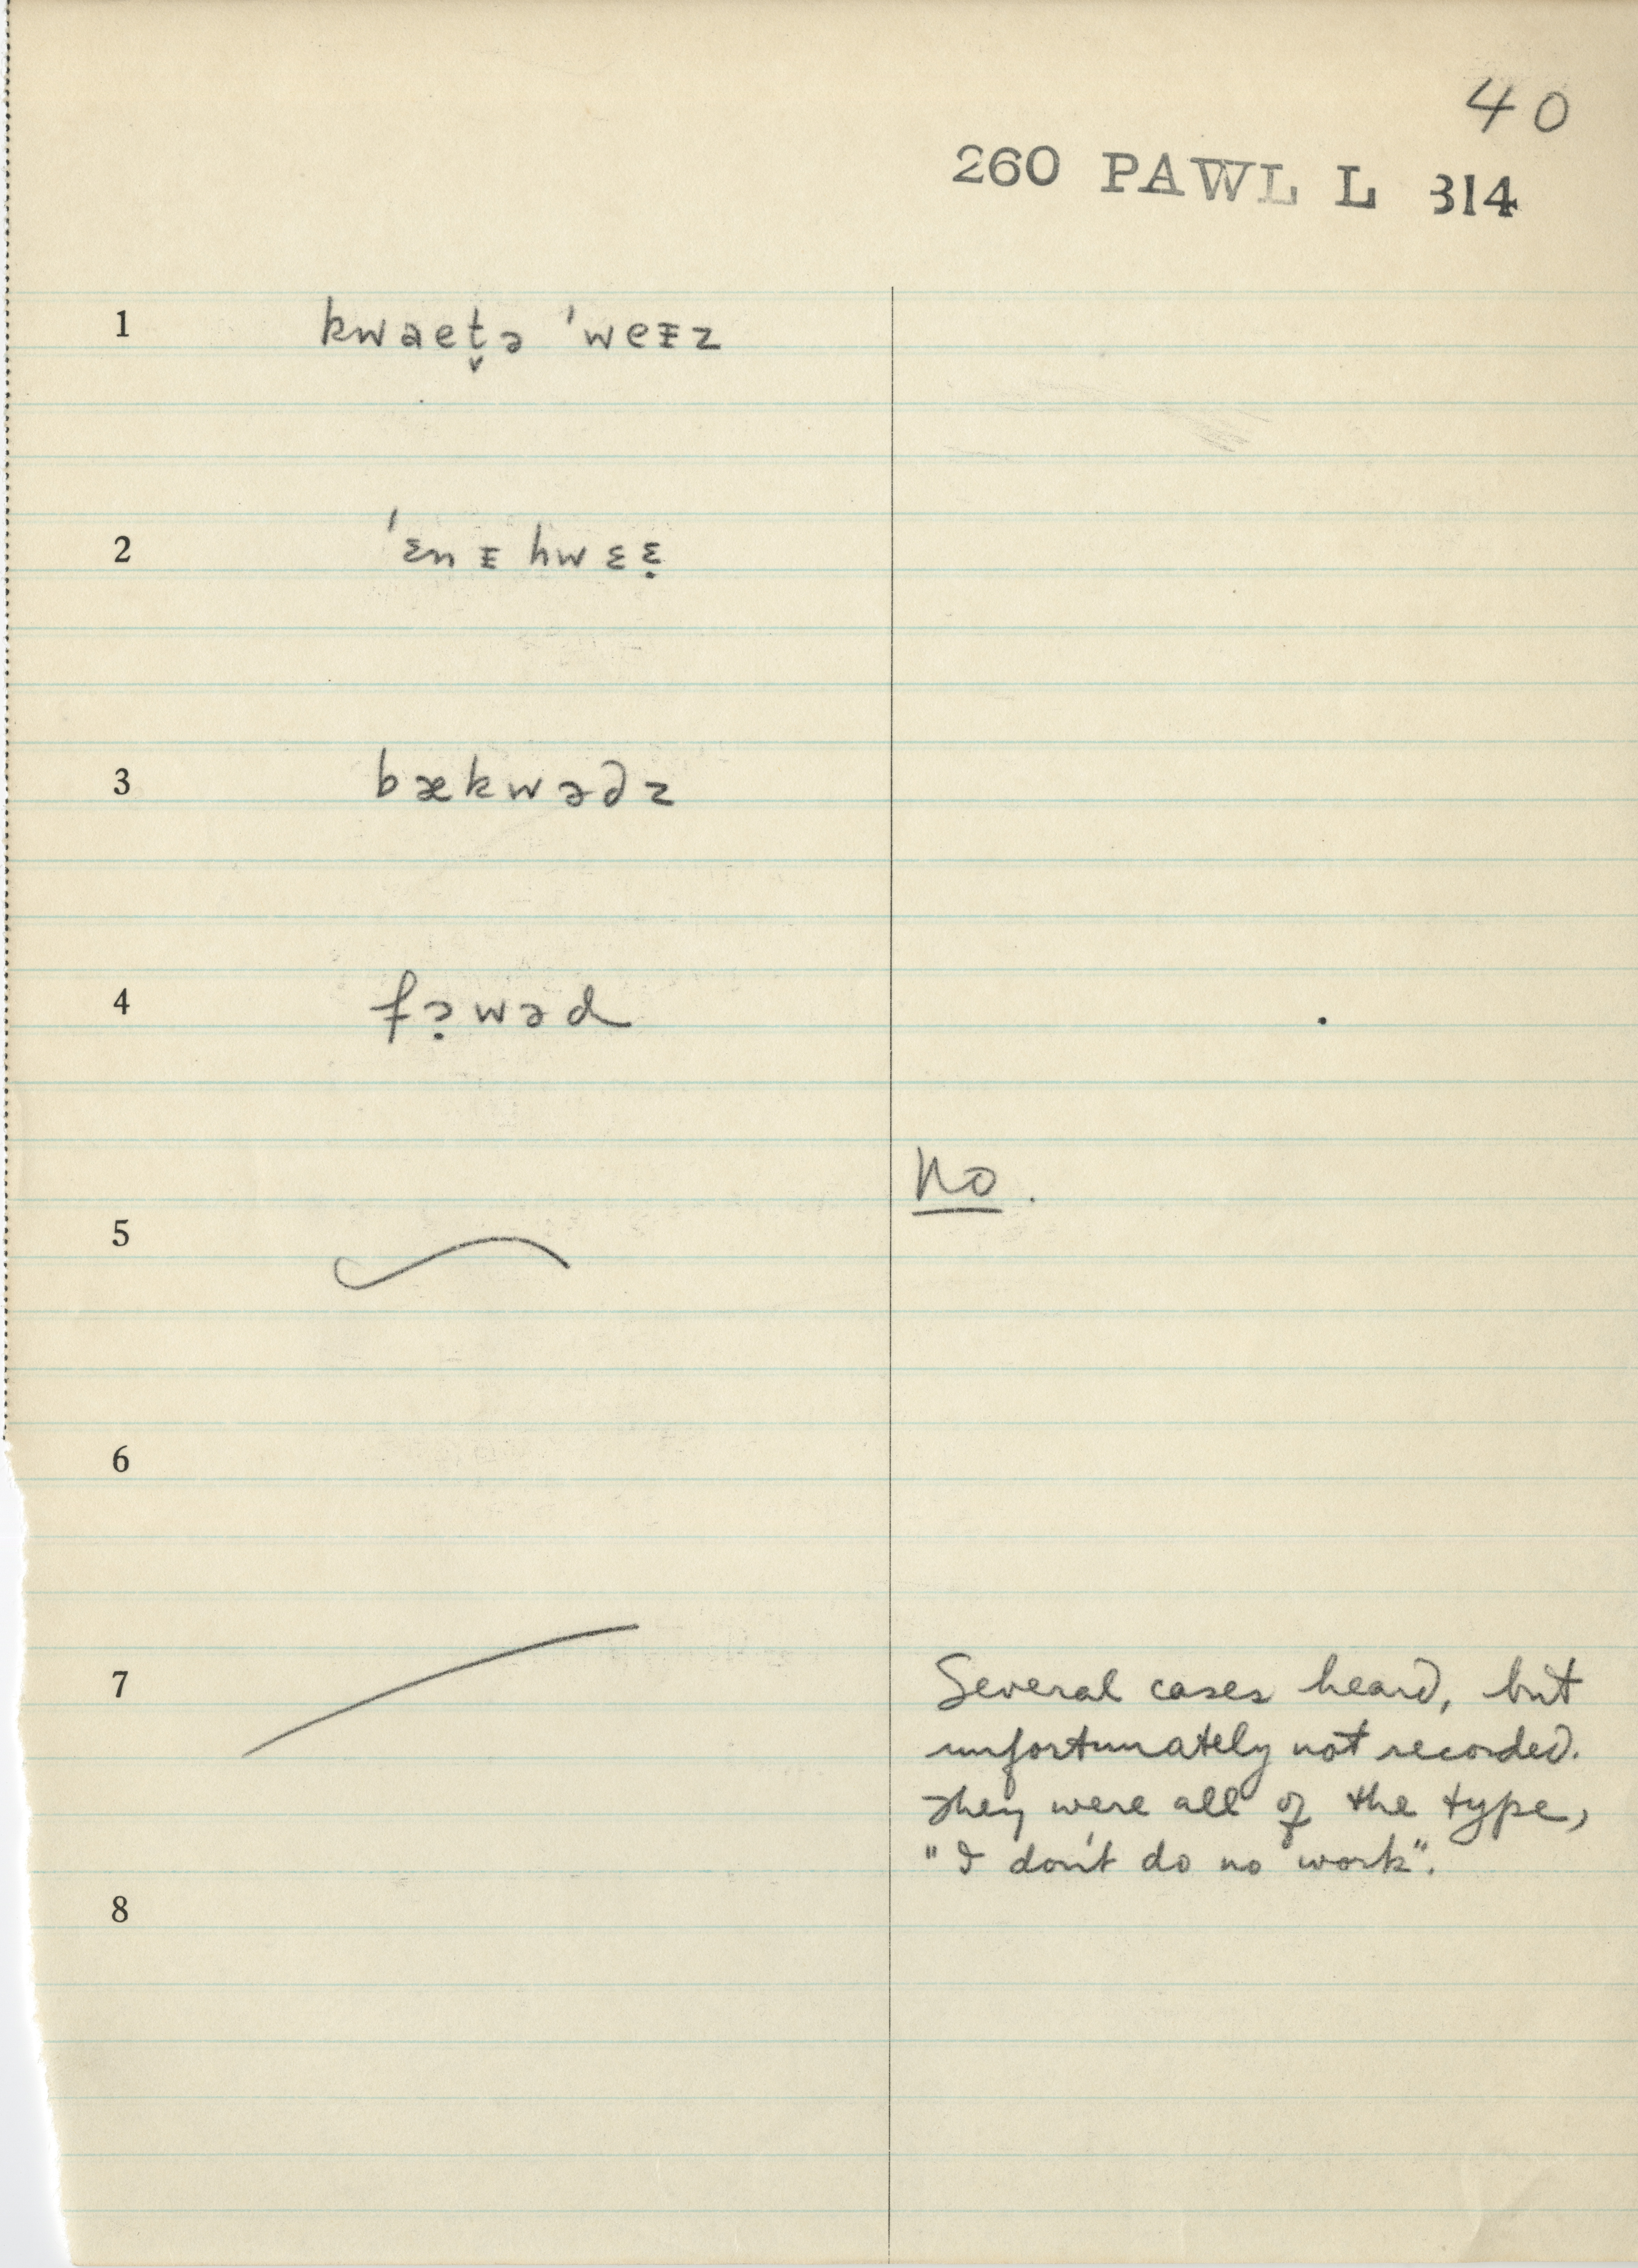 40
260 PAWL L 314
1 kwaet̬ə ˈweᴇz
2 ˈɛnᴇhwɛɛ̣
3 bækwə∂z
4 fə̣wəd
No.
5
6
7 Several cases heard, but
unfortunately not recorded.
They were all of the type,
"I don't do no work".
8